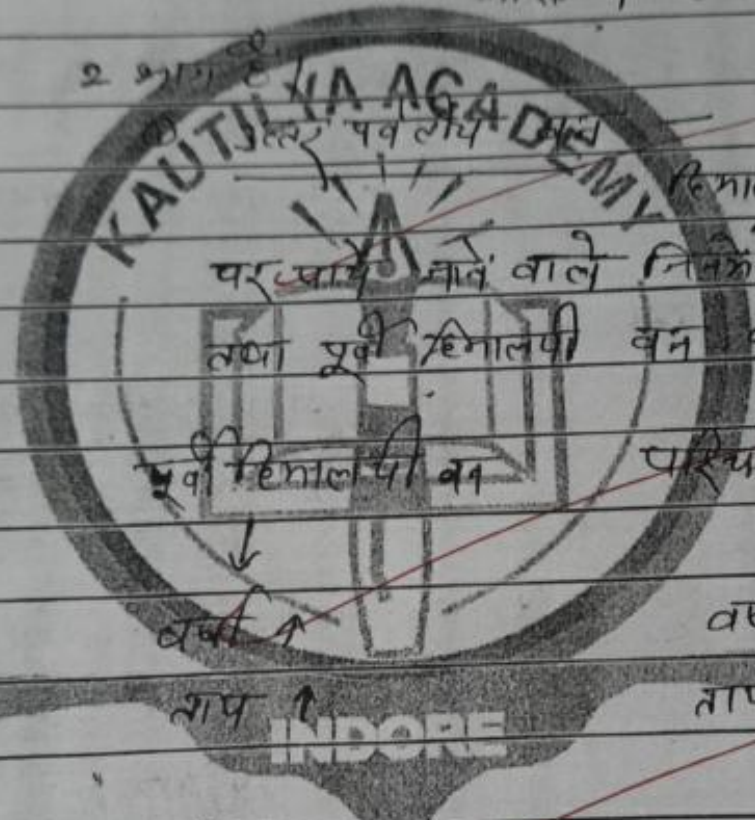 2 भाग है
KAUTILYA ACADEMY
उत्तर पर्वतीय वन
हिमा
पर पाये जाने वाले जिनमें
तथा पूर्वी हिमालयी वन
पूर्वी हिमालयी वन पश्चि
वर्षा ↑ वर्ष
ताप ↑ ताप
INDORE